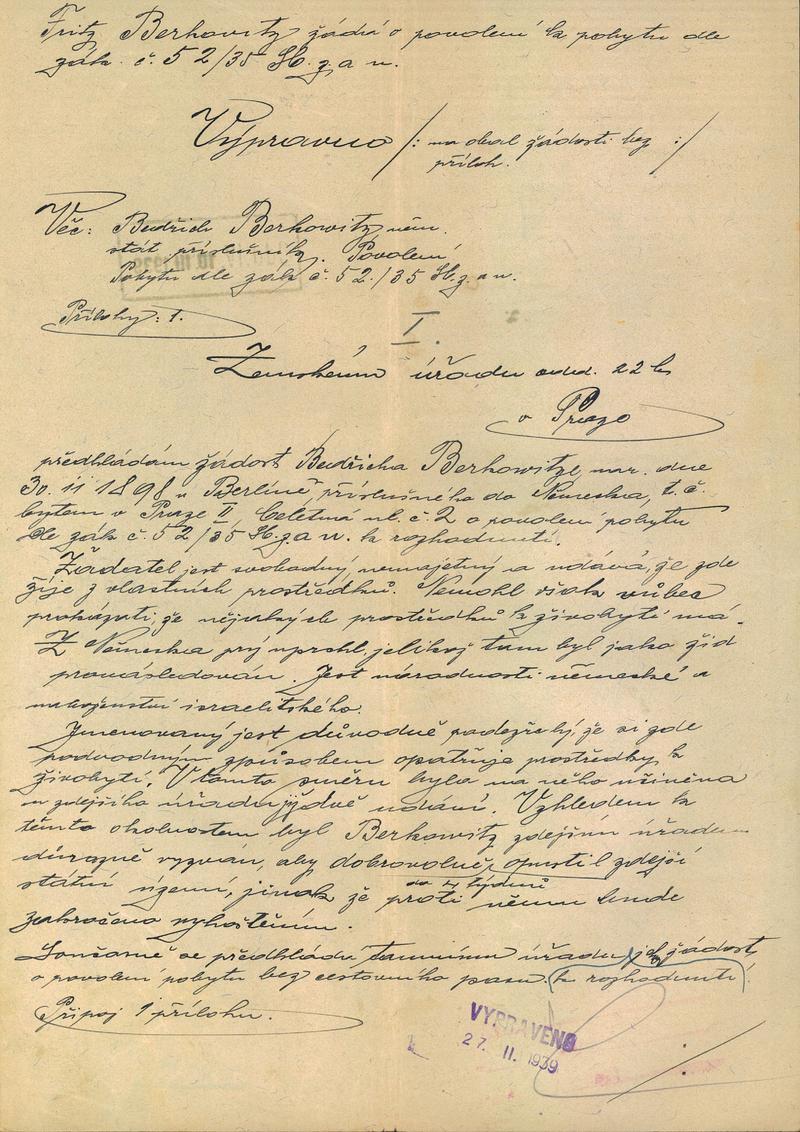 Fritz Berkowitz žádá o povolení k pobytu dle
zák. č. 52/35 Sb. z. a n.
Výpravno /: na obal žádosti bez :/
příloh.
Věc: Bedřich Berkowitz, něm.
stát. příslušník. Povolení
Pobytu dle zák č. 52/35 Sb. z. a n.
Přílohy: 1.
I.
Zemskému úřadu odd. 22 b
v Praze
předkládám žádost Bedřicha Berkowitze, nar. dne
30. 11 1898 v Berlíně, příslušného do Německa, t. č.
bytem v Praze II Celetná ul. č. 2 o povolení pobytu
dle zák č. 52/35 Sb. z. a n. k rozhodnutí.
Žadatel jest svobodný, nemajetný a udává, že zde
žije z vlastních prostředků. Nemohl však vůbec
prokázati, že nějakých prostředků k živobytí má.
Z Německa prý uprchl, jelikož tam byl jako žid
pronásledován. Jest národnosti německé a
náboženství israelitského.
Jmenovaný jest důvodně podezřelý, že si zde
podvodným způsobem opatřuje prostředky k
živobytí. V tomto směru byla na něho učiněna
u zdejšího úřadu již dvě udání. Vzhledem k
těmto okolnostem byl Berkowitz zdejším úřadem
důrazně vyzván, aby dobrovolně opustil zdejší
do 4 týdnů
státní území, jinak že proti němu bude
zakročeno vyhoštěním.
Současně se předkládá tamnímu úřadu jeho žádost
o povolení pobytu bez cestovního pasu k rozhodnutí.
Připoj 1 přílohu.
VYPRAVENO
27. II. 1939